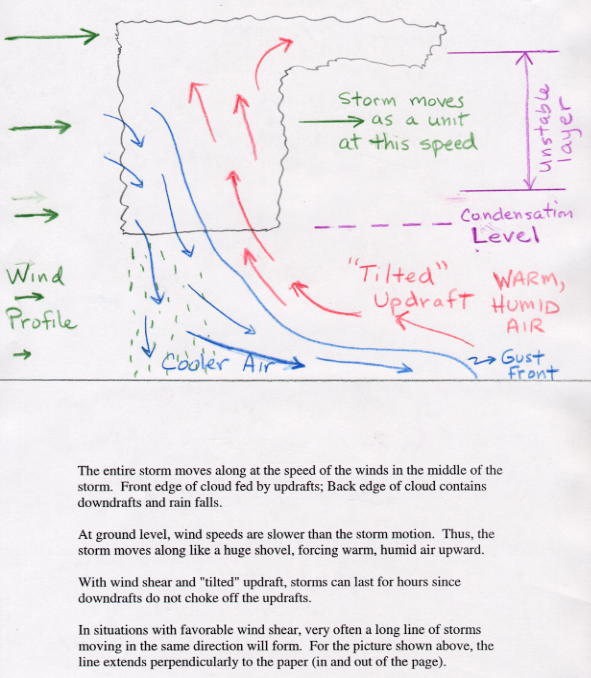 Storm moves
as a unit
at this speed
Unstable
layer
Condensation
Level
Wind
Profile
"Tilted"
Updraft
WARM,
HUMID
AIR
Cooler Air
Gust
Front
The entire storm moves along at the speed of the winds in the middle of the
storm.  Front edge of cloud fed by updrafts; Back edge of cloud contains
downdrafts and rain falls.
At ground level, wind speeds are slower than the storm motion.  Thus, the
storm moves along like a huge shovel, forcing warm, humid air upward.
With wind shear and "tilted" updraft, storms can last for hours since
downdrafts do not choke off the updrafts.
In situations with favorable wind shear, very often a long line of storms
moving in the same direction will form.  For the picture shown above, the
line extends perpendicularly to the paper (in and out of the page).